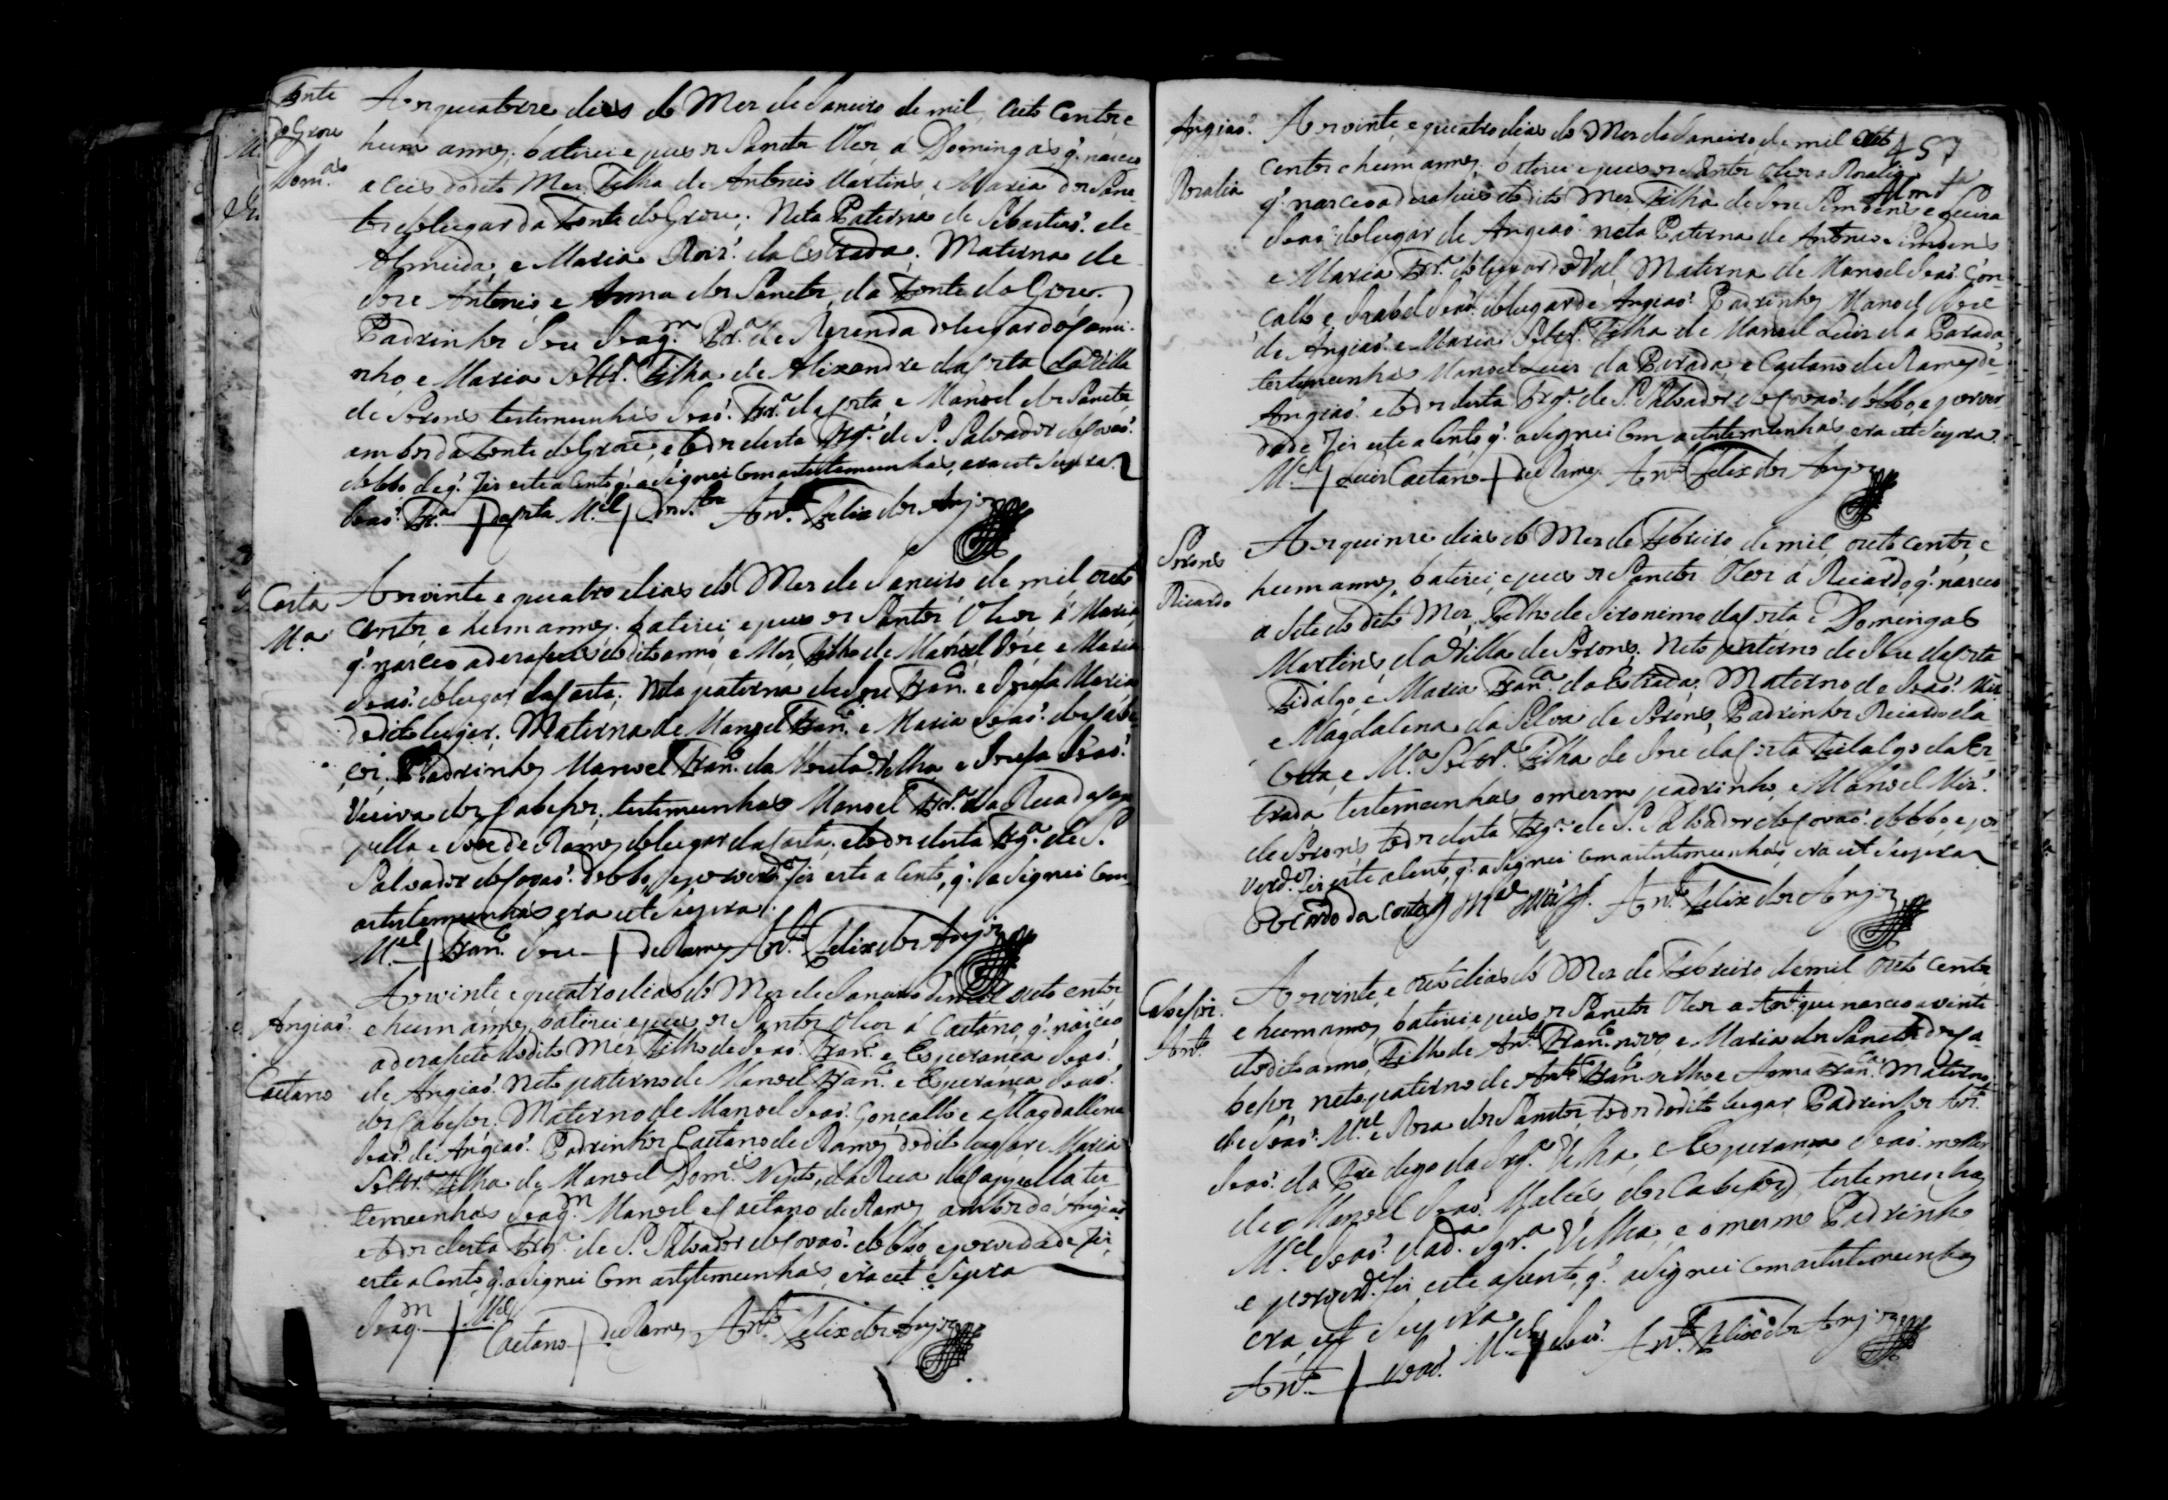 Fonte
do Grou
Dom.as
Aos quatorze dias do Mez de Janeiro de mil oito centos e
hum annos baticei e pus os Sanctos Oleos a Domingas q. nasceo
a seis do dito Mez, Filha de Antonio Martins e Maria dos Sanc-
tos do lugar da Fonte do Grou; Neta Paterna de Sebastiaõ de
Almeida, e Maria Roiz. da Estrada. Materna de
Jose Antonio e Anna dos Sanctos da Fonte do Grou.
Padrinhos Jose Joaq.m de Rezenda do lugar do Cami-
nho e Maria Soltr.a Filha de Alixandre da Costa da Villa
de testemunhas Joaõ da Costa e Manoel dos Sanctos
ambos da Fonte do Grou, e todos desta Frg.a de S. Salvador de Covaõ
do Lobo de q. fis este acento q. asignei com as testemunhas, era ut Supra
Joaõ da Costa M.el dos S.tos Ant.o Felix dos Anjos
Costa
M.a
Aos vinte e quatro dias do Mez de Janeiro de mil oito
centos e hum annos baticei e pus os Santos Oleos á Maria,
q. nasceo a dezaseis do dito anno e Mez Filha de Manoel Jose e Maria
Joaõ do lugar da Costa; Neta paterna de Jose Fran.co e Josefa Maria
do dito lugar. Materna de Manoel Fran.co e Maria Joaõ dos Cabe-
ços. Padrinhos Manoel Fran.co da Velha e Josefa Joaõ
Veuva dos Cabeços, testemunhas Manoel da Rua da Cap-
pella e Jose de Ramos do lugar da Costa, e todos desta Frg.a de S.
Salvador de Covaõ do Lobo, e por verd.e fis este acento, q. asignei com
as testemunhas era ut Supra.
M.el Fran.co Jose de Ramos Ant.o Felix dos Anjos
Angiaõ
Caetano
Aos vinte e quatro dias do Mez de Janeiro de mil oito centos
e hum annos baticei e pus os Santos Oleos á Caetano, q. nasceo
a dezasete do dito Mez Filho de Joaõ Fran.co e Esperança Joaõ
de Angiaõ Neto paterno de Manoel Fran.co e Esperança Joaõ
dos Cabeços. Materno de Manoel Joaõ Gonçallo e Magdallena
Joaõ de Angiaõ. Padrinhos Caetano de Ramos do dito lugar e Maria
Soltr.a Filha de Manoel Dom.es da Rua da Cappella tes-
temunhas Joaq.m Manoel e Caetano de Ramos ambos de Angiaõ
e todos desta Frg.a de S. Salvador de Covaõ do Lobo e por verdade fis
este acento, q. asignei com as testemunhas, era ut Supra
Joaq.m M.el Caetano de Ramos Ant.o Felix dos Anjos
457
Angiaõ
Rozalia
Aos vinte, e quatro dias do Mez de Janeiro de mil oito
centos e hum annos, baticei e pus os Santos Oleos a Rozalia
q. nasceo a dezaseis do dito Mez, Filha de Jose Simoens e Luiza
Joaõ do lugar de Angiaõ neta Paterna de Antonio Simoens
e Maria do lugar do Val, Materna de Manoel Joaõ Gon-
çallo e Izabel Joaõ do lugar de Angiaõ. Padrinhos Manoel Jose
de Angiaõ e Maria Soltr.a Filha de Manoel Luis da Parada,
testemunhas Manoel Luis da Parada e Caetano de Ramos de
Angiaõ e todos desta Frg.a de S. Salvador de Covaõ do Lobo, e por ver-
dade fis este acento q. asignei com as testemunhas era ut Supra.
M.el Luis Caetano de Ramos Ant.o Felix dos Anjos
Ricardo
Aos quinze dias do Mez de Febreiro de mil, oito centos, e
hum annos, baticei, e pus os Sanctos Oleos á Ricardo, q. nasceo
a sete do dito Mez, Filho de Jeronimo da Costa e Domingas
Martins da Villa de Neto paterno de Jose da Costa
Fidalgo, e Maria Fran.ca da Estrada; Materno de Joaõ
e Magdalena da Silva de Padrinhos Ricardo da
Costa, e M.a Soltr.a Filha de Jose da Costa Fidalgo da Es-
trada, testemunhas o mesmo padrinho, e Manoel
de todos desta Frg.a de S. Salvador de Covaõ do Lobo e por
verd.e fis este acento, q. asignei com as testemunhas, era ut Supra
Recardo da Costa M.el Ant.o Felix dos Anjos
Cabeços.
Ant.o
Aos vinte, e oito dias do Mez de Febreiro de mil oito centos
e hum annos, baticei, e pus os Sanctos Oleos a Ant.o que nasceo a vinte
do dito anno, Filho de Ant.o Fran.co novo, e Maria dos Sanctos dos Ca-
beços, neto paterno de Ant.o Fran.co velho e Anna Fran.ca Materno
de Joaõ M.el e Roza dos Sanctos, todos do dito lugar, Padrinhos Ant.o
Joaõ da da Frg.a Velha, e Esperança Joaõ molher
de Manoel Joaõ dos Cabeços, testemunhas
M.el Joaõ da d.a Velha, e o mesmo Padrinho
e por verd.e fis este asento, q. asignei com as testemunhas
era, ut Supra
Ant.o Joaõ M.el Joaõ Ant.o Felix dos Anjos